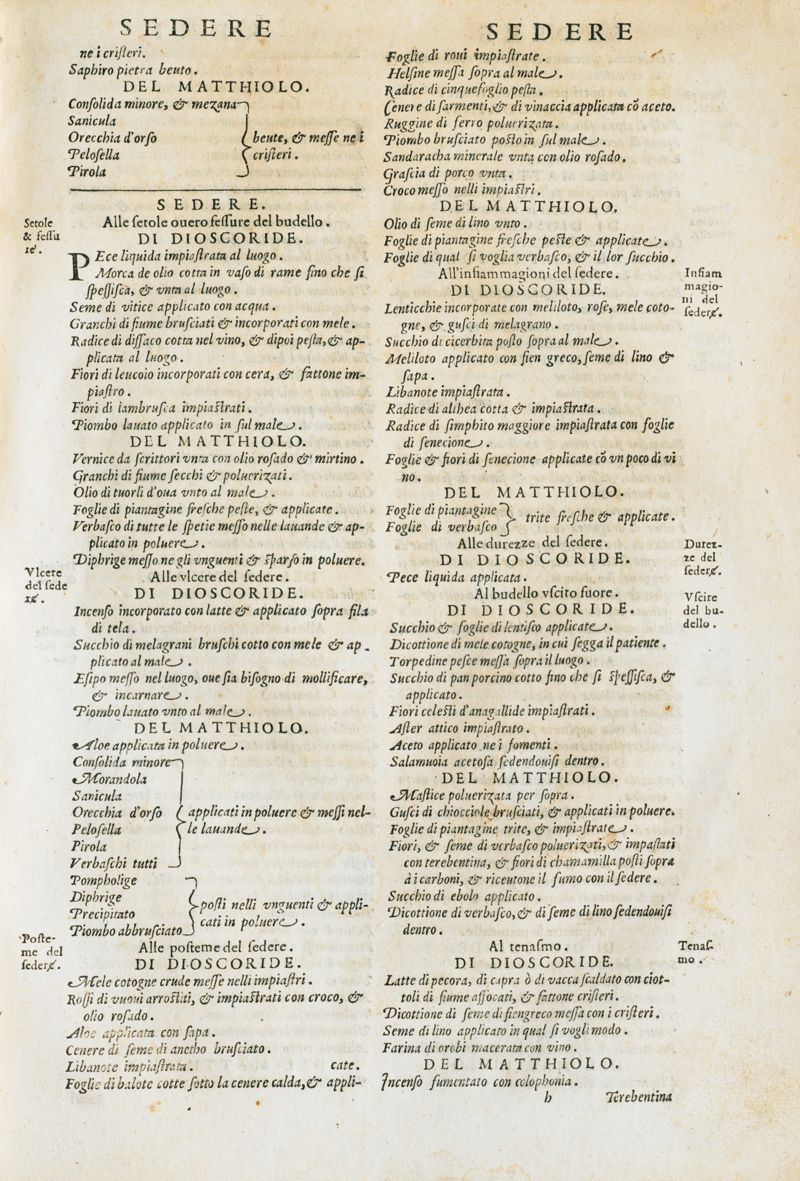 SEDERE
ne i cristeri.
Saphiro pietra beuto.
DEL MATTHIOLO.
Consolida minore, & mezana
Sanicula
Orecchia d'orso
Pelosella
Pirola
beute, & messe ne i
cristeri.
SEDERE.
Setole
& fessu
re.
Alle setole ouero fessure del budello.
DI DIOSCORIDE.
PEce liquida impiastrata al luogo.
Morca de olio cotta in vaso di rame fino che si
spessisca, & vnta al luogo.
Seme di vitice applicato con acqua.
Granchi di fiume brusciati & incorporati con mele.
Radice di dissaco cotta nel vino, & dipoi pesta, & ap-
plicata al luogo.
Fiori di leucoio incorporati con cera, & fattone im-
piastro.
Fiori di lambrusca impiastrati.
Piombo lauato applicato in sul male.
DEL MATTHIOLO.
Vernice da scrittori vnta con olio rosado & mirtino.
Granchi di fiume secchi & poluerizati.
Olio di tuorli d'oua vnto al male.
Foglie di piantagine fresche peste, & applicate.
Verbasco di tutte le spetie messo nelle lauande & ap-
plicato in poluere.
Diphrige messo ne gli vnguenti & sparso in poluere.
Vlcere
del sede
re.
Alle vlcere del sedere.
DI DIOSCORIDE.
Incenso incorporato con latte & applicato sopra fila
di tela.
Succhio di melagrani bruschi cotto con mele & ap-
plicato al male.
Esipo messo nel luogo, oue sia bisogno di mollificare,
& incarnare.
Piombo lauato vnto al male.
DEL MATTHIOLO.
Aloe applicata in poluere.
Consolida minore
Morandola
Sanicula
Orecchia d'orso
Pelosella
Pirola
Verbaschi tutti
applicati in poluere & messi nel-
le lauande.
Pompholige
Diphrige
Precipitato
Piombo abbrusciato
posti nelli vnguenti & appli-
cati in poluere.
Poste-
me del
sedere.
Alle posteme del sedere.
DI DIOSCORIDE.
Mele cotogne crude messe nelli impiastri.
Rossi di vuoui arrostiti, & impiastrati con croco, &
olio rosado.
Aloe applicata con sapa.
Cenere di seme di anetho brusciato.
Libanote impiastrata.
cate.
Foglie di balote cotte sotto la cenere calda, & appli-
SEDERE
Foglie di roui impiastrate.
Helsine messa sopra al male.
Radice di cinquefoglio pesta.
Cenere di sarmenti, & di vinaccia applicata cō aceto.
Ruggine di ferro poluerizata.
Piombo brusciato posto in sul male.
Sandaracha minerale vnta con olio rosado.
Grascia di porco vnta.
Croco messo nelli impiastri.
DEL MATTHIOLO.
Olio di seme di lino vnto.
Foglie di piantagine fresche peste & applicate.
Foglie di qual si voglia verbasco, & il lor succhio.
Infiam
magio-
ni del
sedere.
All'infiammagioni del sedere.
DI DIOSCORIDE.
Lenticchie incorporate con meliloto, rose, mele coto-
gne, & gusci di melagrano.
Succhio di cicerbita posto sopra al male.
Meliloto applicato con fien greco, seme di lino &
sapa.
Libanote impiastrata.
Radice di althea cotta & impiastrata.
Radice di simphito maggiore impiastrata con foglie
di senecione.
Foglie & fiori di senecione applicate cō vn poco di vi
no.
DEL MATTHIOLO.
Foglie di piantagine
Foglie di verbasco
trite fresche & applicate.
Durez-
ze del
sedere.
Alle durezze del sedere.
DI DIOSCORIDE.
Pece liquida applicata.
Vscire
del bu-
dello.
Al budello vscito fuore.
DI DIOSCORIDE.
Succhio & foglie di lentisco applicate.
Dicottione di mele cotogne, in cui segga il patiente.
Torpedine pesce messa sopra il luogo.
Succhio di pan porcino cotto fino che si spessisca, &
applicato.
Fiori celesti d'anagallide impiastrati.
Aster attico impiastrato.
Aceto applicato ne i fomenti.
Salamuoia acetosa sedendouisi dentro.
DEL MATTHIOLO.
Mastice poluerizata per sopra.
Gusci di chiocciole brusciati, & applicati in poluere.
Foglie di piantagine trite, & impiastrate.
Fiori, & seme di verbasco poluerizati, & impastati
con terebentina, & fiori di chamamilla posti sopra
à i carboni, & riceutone il fumo con il sedere.
Succhio di ebolo applicato.
Dicottione di verbasco, & di seme di lino sedendouisi
dentro.
Tenas-
mo.
Al tenasmo.
DI DIOSCORIDE.
Latte di pecora, di capra ò di vacca scaldato con ciot-
toli di fiume affocati, & fattone cristeri.
Dicottione di seme di fiengreco messa con i cristeri.
Seme di lino applicato in qual si vogli modo.
Farina di orobi macerata con vino.
DEL MATTHIOLO.
Incenso fumentato con colophonia.
b
Terebentina